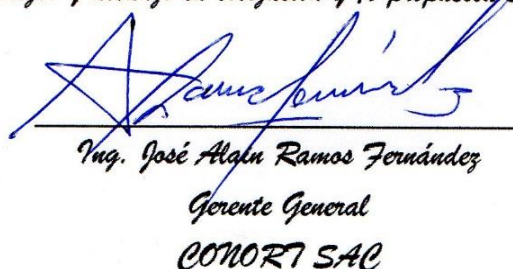 Ing. José Alain Ramos Fernández
Gerente General
CONORT SAC